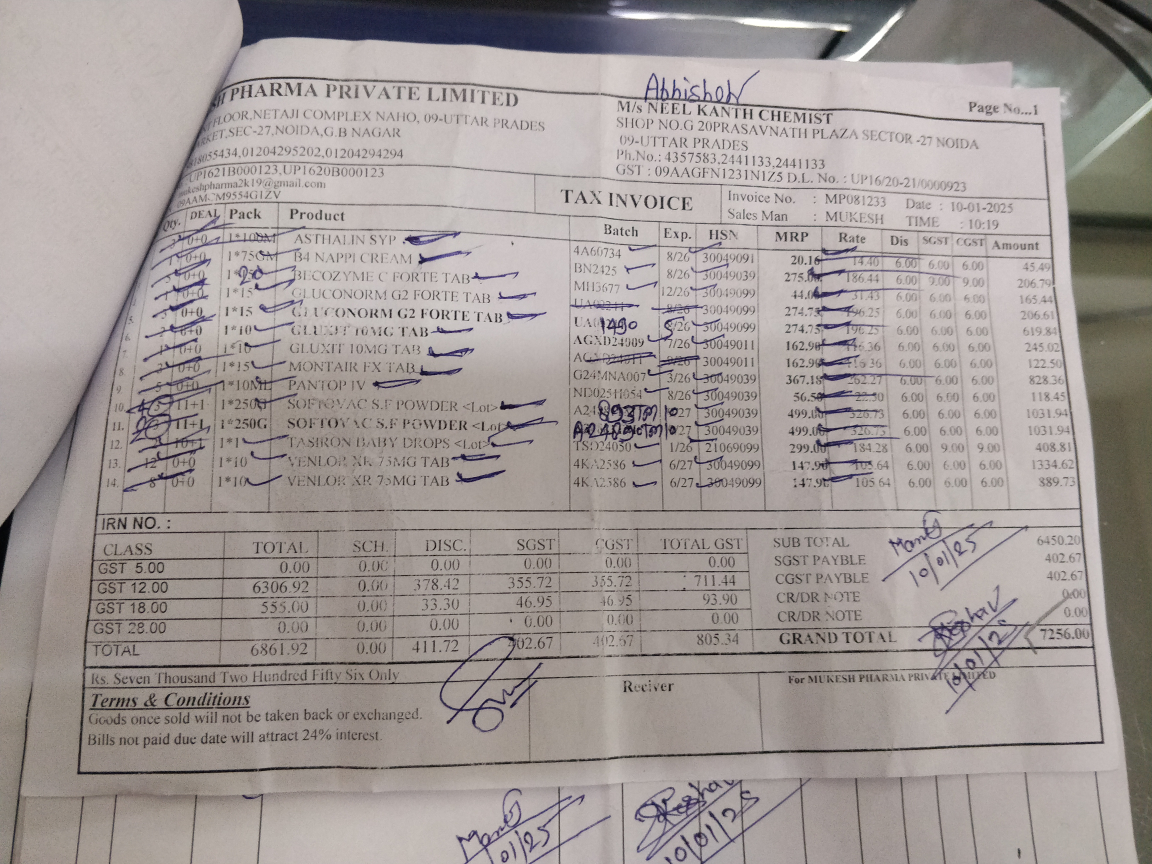 Abhishek
SH PHARMA PRIVATE LIMITED
FLOOR,NETAJI COMPLEX NAHO, 09-UTTAR PRADES
RKET,SEC-27,NOIDA,G.B NAGAR
8055434,01204295202,01204294294
UP1621B000123,UP1620B000123
mukeshpharma2k19@gmail.com
09AAMCM9554G1ZV
Page No...1
M/s NEEL KANTH CHEMIST
SHOP NO.G 20PRASAVNATH PLAZA SECTOR -27 NOIDA
09-UTTAR PRADES
Ph.No.: 4357583,2441133,2441133
GST : 09AAGFN1231N1Z5 D.L. No. : UP16/20-21/0000923
TAX INVOICE
Invoice No. : MP081233 Date : 10-01-2025
Sales Man : MUKESH TIME : 10:19
Qty. DEAL Pack Product Batch Exp. HSN MRP Rate Dis SGST CGST Amount
0+0 ASTHALIN SYP 4A60734 8/26 30049091 20.16 14.40 6.00 6.00 6.00 45.49
0+0 1*75GM B4 NAPPI CREAM BN2425 8/26 30049039 186.44 6.00 9.00 9.00 206.79
0+0 BECOZYME C FORTE TAB MH3677 12/26 30049099 31.43 6.00 6.00 6.00 165.44
0+0 1*15 GLUCONORM G2 FORTE TAB 8/26 30049099 274.75 196.25 6.00 6.00 6.00 206.61
0+0 1*15 GLUCONORM G2 FORTE TAB 30049099 274.75 196.25 6.00 6.00 6.00 619.84
0+0 1*10 GLUXIT 10MG TAB AGXD24009 7/26 30049011 162.90 116.36 6.00 6.00 6.00 245.02
0+0 1*10 GLUXIT 10MG TAB 30049011 162.90 116.36 6.00 6.00 6.00 122.50
0+0 1*15 MONTAIR FX TAB G24MNA007 3/26 30049039 367.18 262.27 6.00 6.00 6.00 828.36
5 0+0 1*10ML PANTOP IV 8/26 30049099 56.50 6.00 6.00 6.00 118.45
10. 11+1 1*250G SOFTOVAC S.F POWDER <Lot> 30049039 499.00 326.73 6.00 6.00 6.00 1031.94
11. 11+1 1*250G SOFTOVAC S.F POWDER <Lot> 30049039 499.00 326.73 6.00 6.00 6.00 1031.94
12. 10+1 1*1 TASIRON BABY DROPS <Lot> TSD24050 1/26 21069099 299.00 184.28 6.00 9.00 9.00 408.81
13. 12 0+0 1*10 VENLOR XR 75MG TAB 4KA2586 6/27 30049099 147.90 105.64 6.00 6.00 6.00 1334.62
14. 8 0+0 1*10 VENLOR XR 75MG TAB 4KA2586 6/27 30049099 147.90 105.64 6.00 6.00 6.00 889.73
IRN NO. :
CLASS TOTAL SCH. DISC. SGST CGST TOTAL GST
GST 5.00 0.00 0.00 0.00 0.00 0.00 0.00
GST 12.00 6306.92 0.00 378.42 355.72 355.72 711.44
GST 18.00 555.00 0.00 33.30 46.95 46.95 93.90
GST 28.00 0.00 0.00 0.00 0.00 0.00 0.00
TOTAL 6861.92 0.00 411.72 402.67 402.67 805.34
SUB TOTAL 6450.20
SGST PAYBLE 402.67
CGST PAYBLE 402.67
CR/DR NOTE 0.00
CR/DR NOTE 0.00
GRAND TOTAL 7256.00
10/01/25
10/01/2
Rs. Seven Thousand Two Hundred Fifty Six Only
Terms & Conditions
Goods once sold will not be taken back or exchanged.
Bills not paid due date will attract 24% interest.
Reciver
For MUKESH PHARMA PRIVATE LIMITED
10/01/25
10/01/2